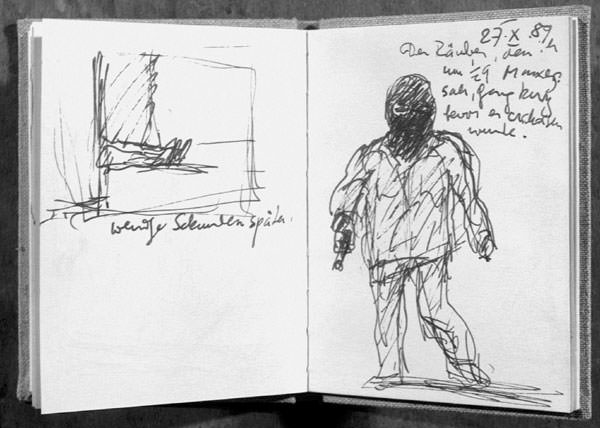 wenige Sekunden später.
27. X. 89
Der Räuber, den ich
um 19
sah, ganz kurz
bevor er erschossen
wurde.